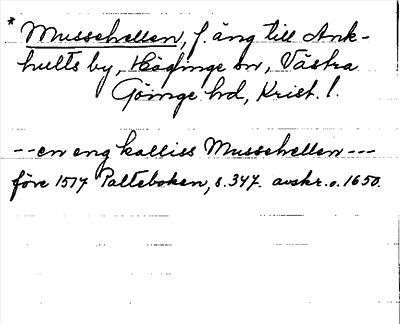 * Mussehellen, f. äng till Ank-
hults by, Häglinge sn, Västra
Göinge hd, Krist. l.
--en eng kalliss Mussehellen---
före 1517 Palteboken, s. 347. avskr. o. 1650.